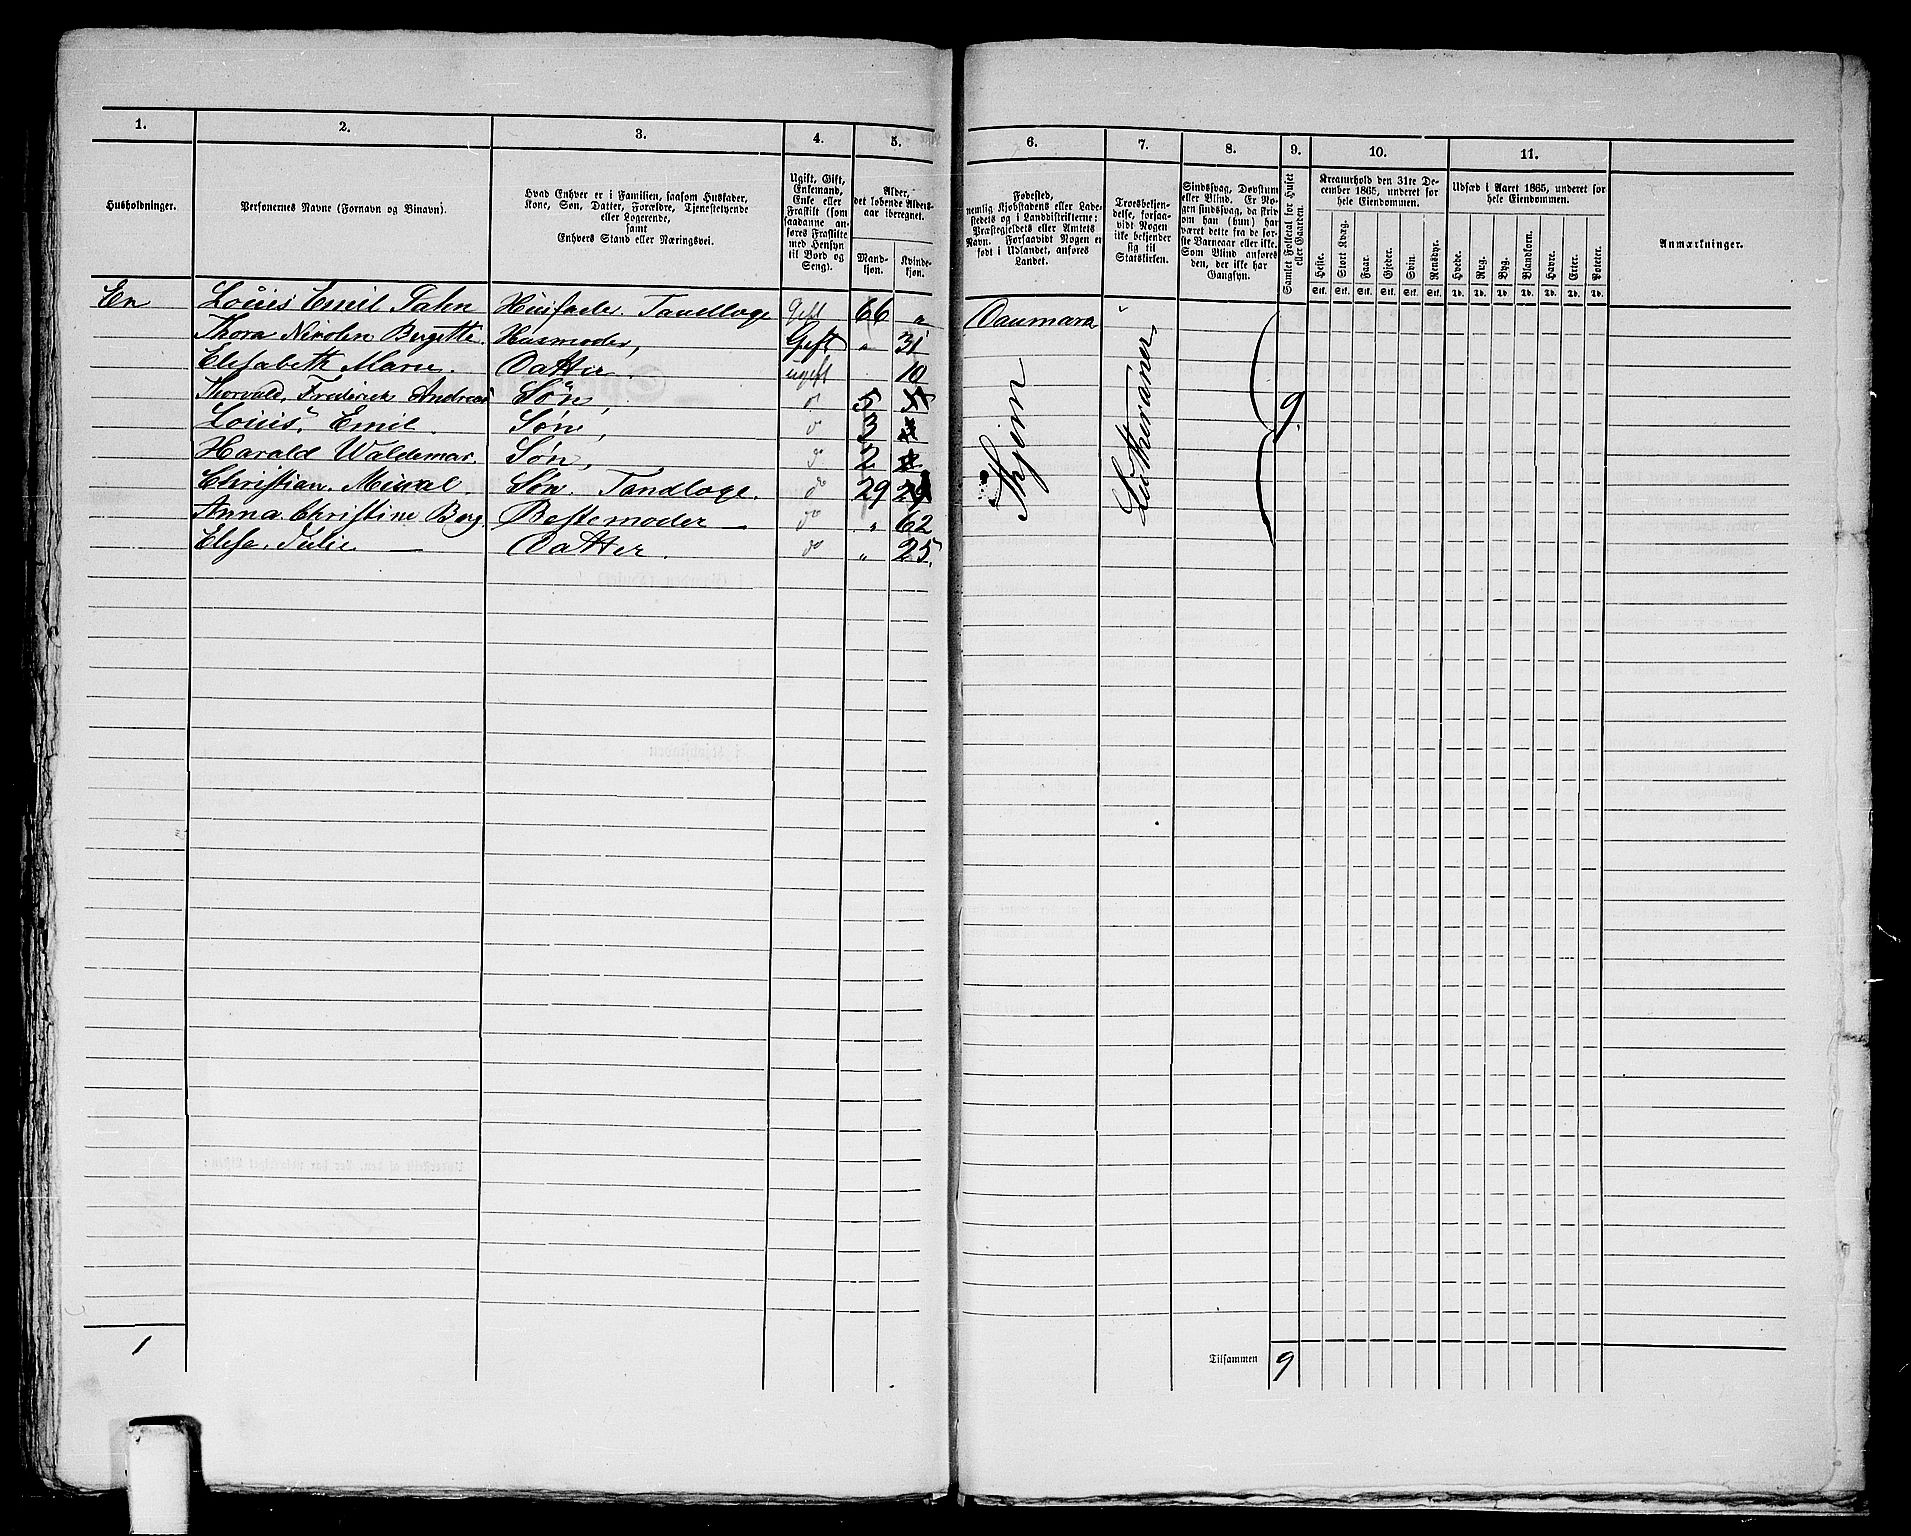 1. 2. 3. 4. 5. 6. 7. 8. 9. 10. 11.
Husholdninger.
Personernes Navne (Fornavn og Binavn).
Hvad Enhver er i Familien, saasom Husfader,
Kone, Søn, Datter, Forældre, Tjenestetyende
eller Logerende,
samt
Enhvers Stand eller Næringsvei.
Ugift, Gift,
Enkemand,
Enke eller
Fraskilt (som
saadanne an-
føres Fraskilte
med Hensyn
til Bord og
Seng).
Alder,
det løbende Alders-
aar iberegnet.
Mand-
kjøn.
Kvinde-
kjøn.
Fødested,
nemlig Kjøbstadens eller Lade-
stedets og i Landdistrikterne:
Præstegjeldets eller Amtets
Navn. Forsaavidt Nogen er
født i Udlandet, anføres
Landet.
Troesbekjen-
delse, forsaa-
vidt Nogen
ikke bekjender
sig til
Statskirken.
Sindssvag, Døvstum
eller Blind. Er No-
gen sindssvag, da skriv
om han (hun) har
været dette fra de før-
ste Barneaar eller ikke.
Som Blind anføres
den, der ikke har
Gangsyn.
Samlet Folketal for Huset
eller Gaarden.
Kreaturhold den 31te De-
cember 1865, underet for
hele Eiendommen.
Heste. Stort Kvæg. Faar. Gjeder. Svin. Rensdyr.
Stk. Stk. Stk. Stk. Stk. Stk.
Udsæd i Aaret 1865, underet for
hele Eiendommen.
Hvede. Rug. Byg. Blandkorn. Havre. Erter. Poteter.
Td. Td. Td. Td. Td. Td. Td.
Anmærkninger.
En Louis Emil Husfader Tandlæge Gift 66 " Danmark
Thora Nicolen Bergette. Husmoder, Gift " 31
Elisabeth Marie. Datter. ugift 10
Thorvald, Frederick Andreas Søn, do 5
Louis, Emil. Søn, do 3
Harald Waldemar. Søn, do 2
Christian. Søn. Tandlæge. do 29
Anna Christine Berg. Bestemoder — do " 62
Elise. Julie — Datter. do " 25.
Skjen
Lutheraner
9
1
Tilsammen 9